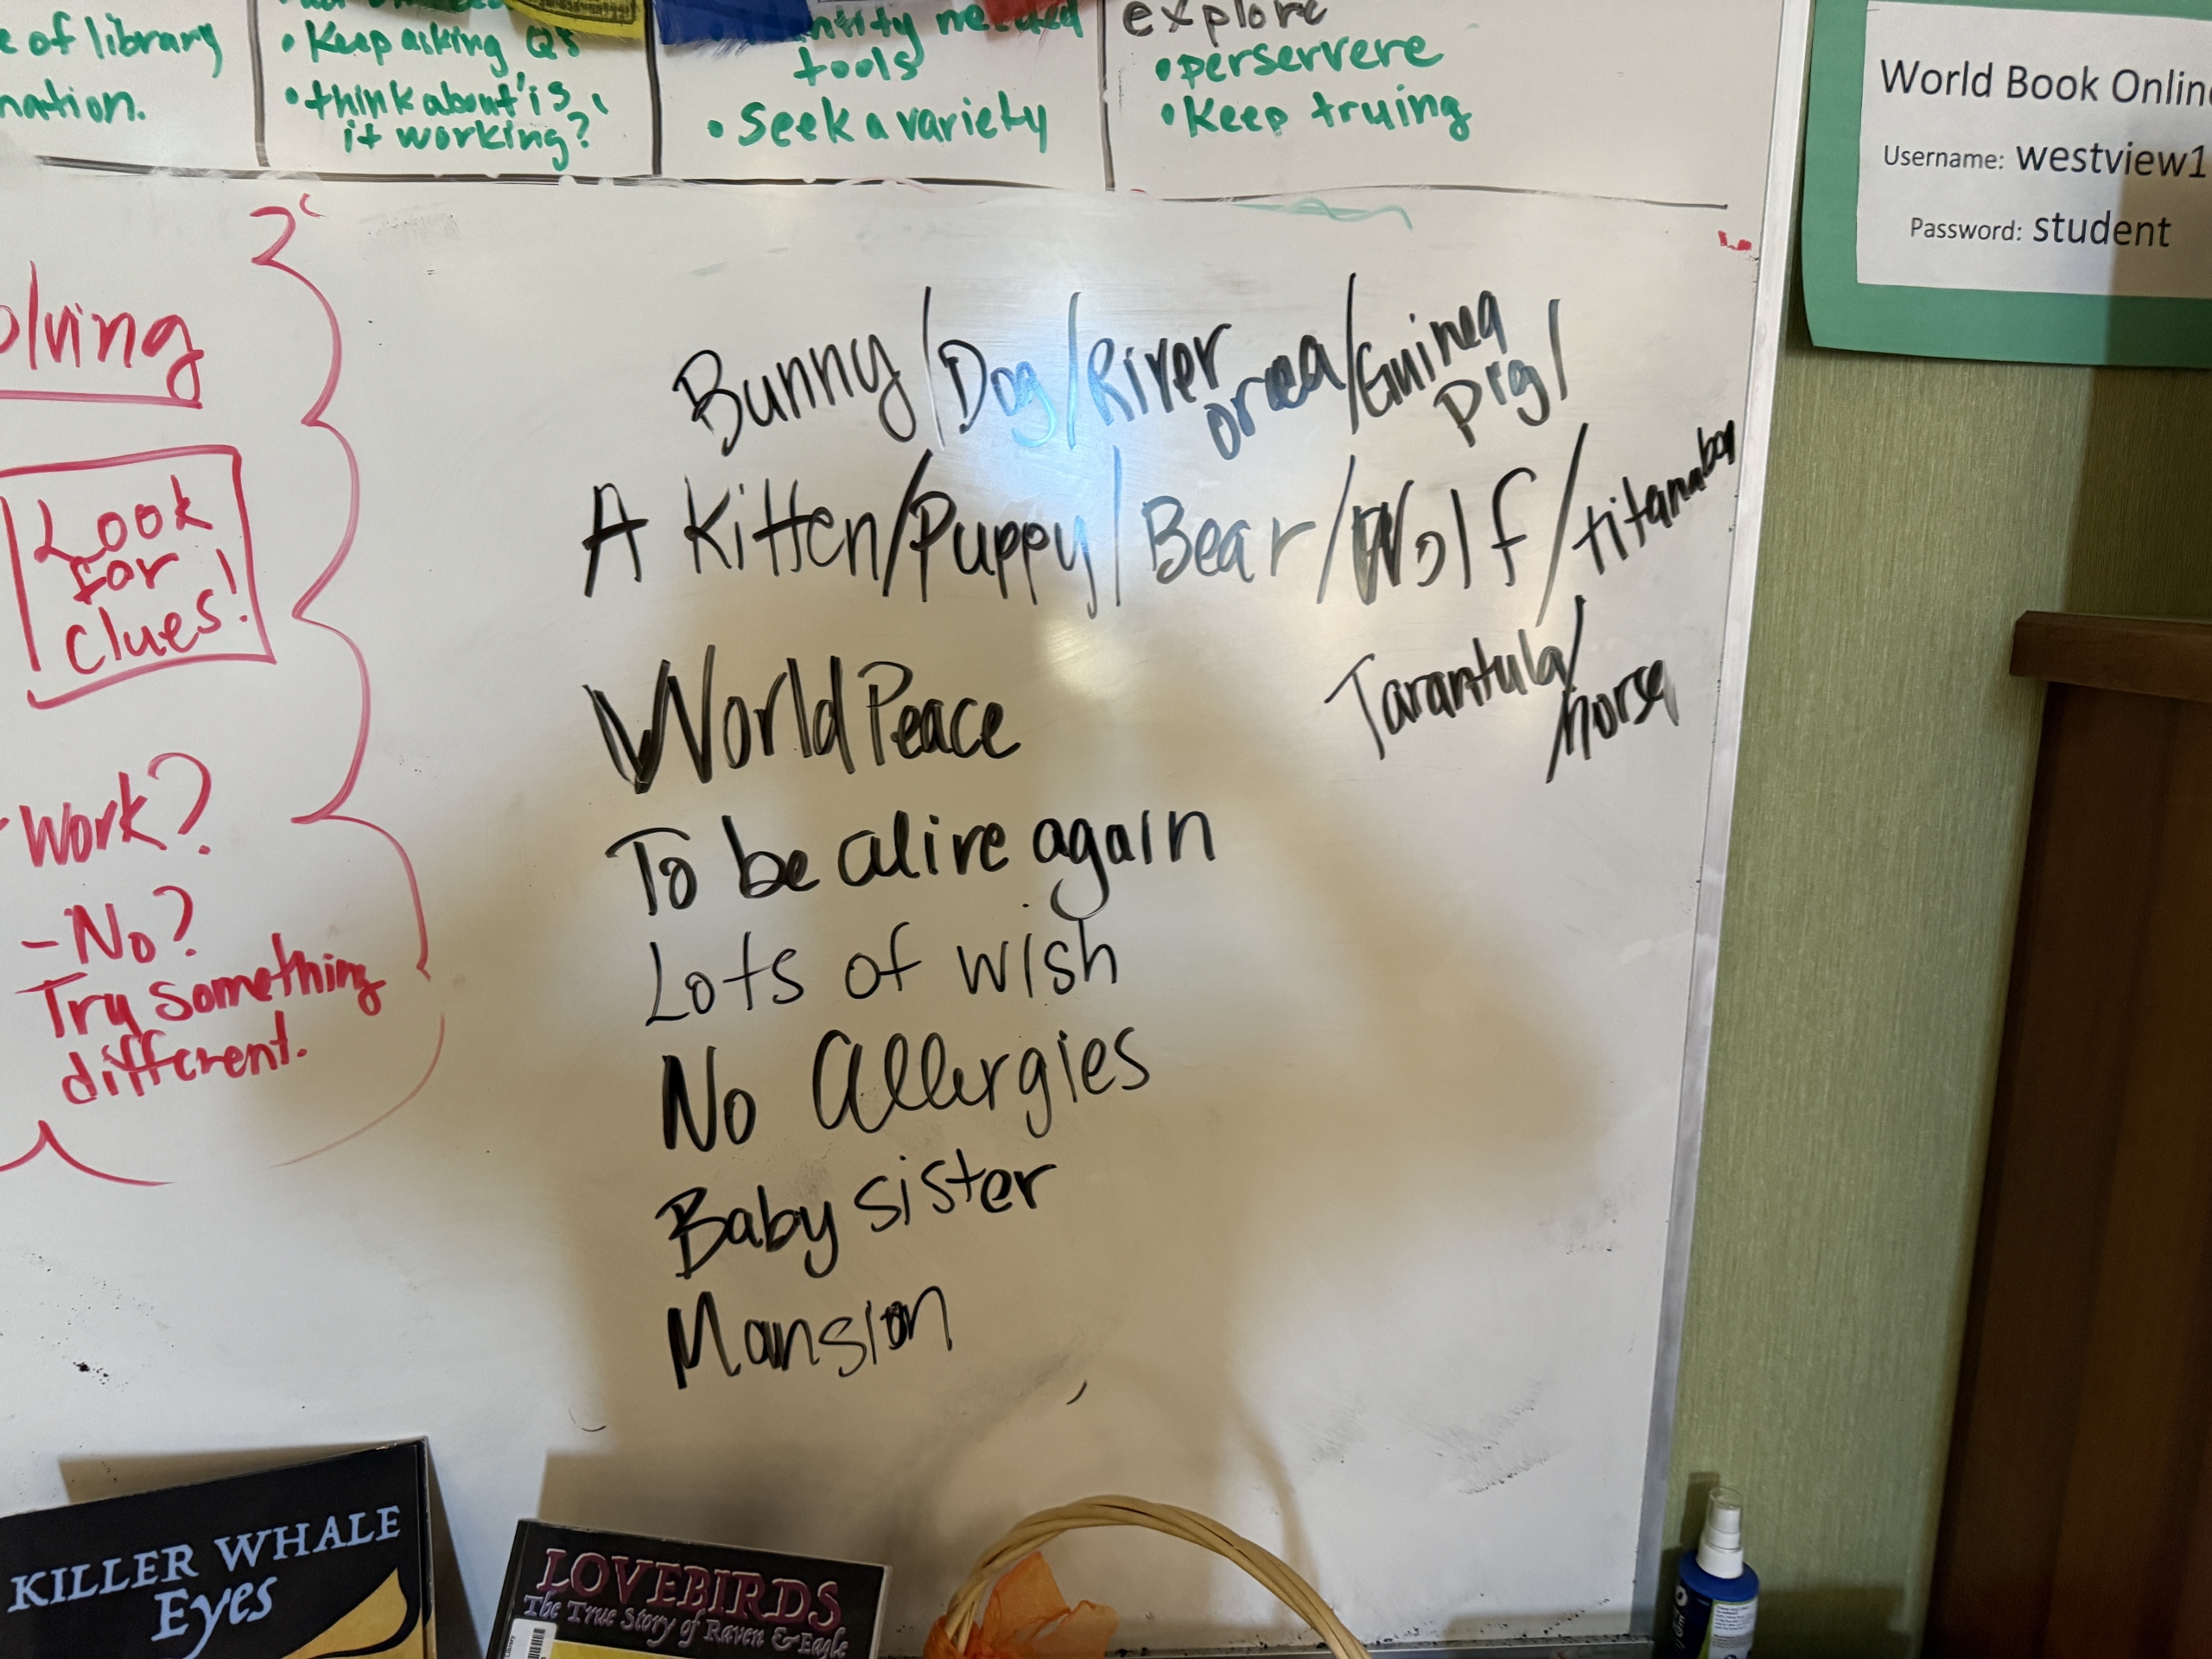 e of library
nation.
• Keep asking Qs
• think about 'is
it working?
needed
tools
• Seek a variety
explore
• perservere
• Keep truing
World Book Onlin
Username: westview1
Password: student
olving
Look
for
clues!
Work?
- No?
Try something
different.
Bunny/Dog/River orca/Guinea Pig/
A Kitten/Puppy/Bear/Wolf/titanaboa
Tarantula/
horse
World Peace
To be alive again
Lots of wish
No Allergies
Baby sister
Mansion
KILLER WHALE
Eyes
LOVEBIRDS
The True Story of Raven & Eagle